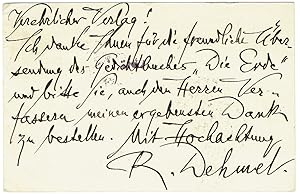 Verehrlicher Verlag!
Ich danke Ihnen für die freundliche Über-
sendung des Gedichtbuches „Die Erde"
und bitte Sie, auch den Herren Ver-
fassern meinen ergebensten Dank
zu bestellen. Mit Hochachtung
R. Dehmel.